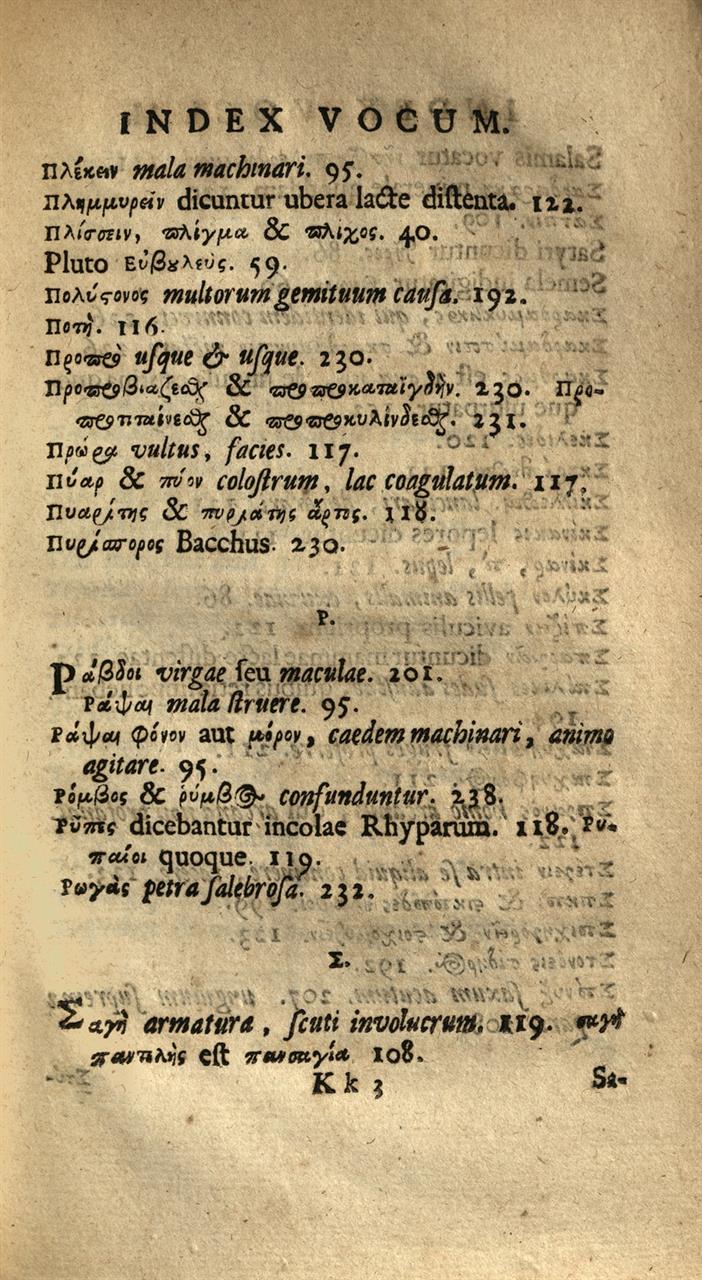 INDEX VOCUM.
Πλέκειν mala machinari. 95.
Πλημμυρεῖν dicuntur ubera lacte distenta. 122.
Πλίσσειν, πλίγμα & πλίχος. 40.
Pluto Εὐβουλεὺς. 59.
Πολύστονος multorum gemituum causa. 192.
Ποτὴ. 116.
Προπρὸ usque & usque. 230.
Προπροβιάζεσθαι & προπροκαταϊγδὴν. 230. Προ-
προπταίνεσθαι & προπροκυλίνδεσθαι. 231.
Πρώρα vultus, facies. 117.
Πύαρ & πύον colostrum, lac coagulatum. 117.
Πυαρίτης & πυριάτης ἄρτος. 118.
Πυρίσπορος Bacchus. 230.
Ρ.
Ράβδοι virgae seu maculae. 201.
Ράψαι mala struere. 95.
Ράψαι φόνον aut μόρον, caedem machinari, animo
agitare. 95.
Ρόμβος & ῥύμβος confunduntur. 238.
Ρῦπες dicebantur incolae Rhyparum. 118. Ρυ-
παῖοι quoque. 119.
Ρωγὰς petra salebrosa. 232.
Σ.
Σαγὴ armatura, scuti involucrum. 119. σαγὴ
παντελὴς est πανσαγία 108.
Kk 3
Sa-